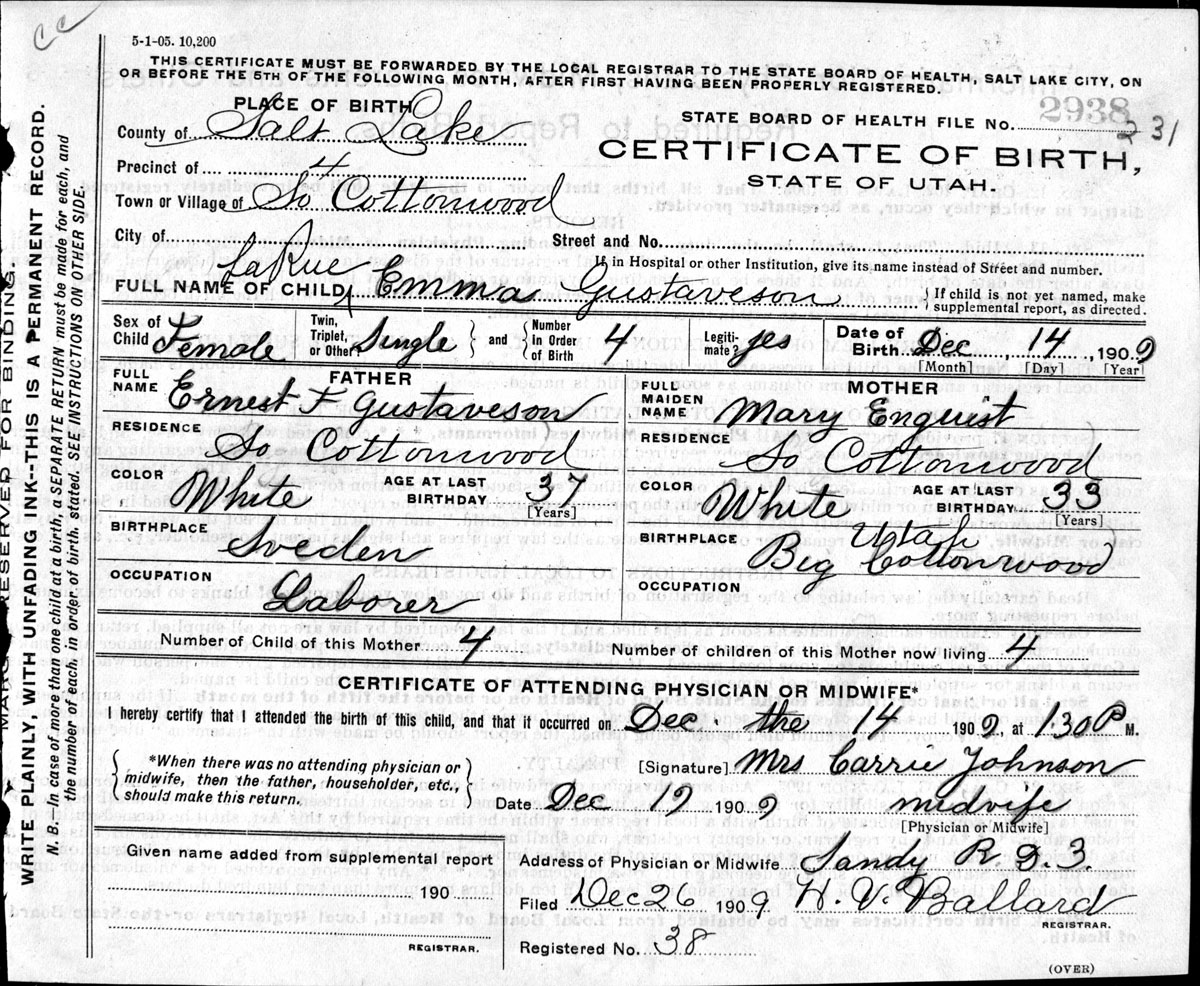 CC
5-1-05. 10,200
THIS CERTIFICATE MUST BE FORWARDED BY THE LOCAL REGISTRAR TO THE STATE BOARD OF HEALTH, SALT LAKE CITY, ON
OR BEFORE THE 5TH OF THE FOLLOWING MONTH, AFTER FIRST HAVING BEEN PROPERLY REGISTERED.
PLACE OF BIRTH
County of Salt Lake
Precinct of 4
Town or Village of So Cottonwood
City of
STATE BOARD OF HEALTH FILE No. 2938 231
CERTIFICATE OF BIRTH,
STATE OF UTAH.
Street and No.
If in Hospital or other Institution, give its name instead of Street and number.
FULL NAME OF CHILD LaRue Emma Gustaveson { If child is not yet named, make
supplemental report, as directed.
Sex of Child Female
Twin, Triplet, or Other? Single } and { Number in Order of Birth 4
Legiti-mate? yes
Date of Birth Dec, 14, 1909
[Month] [Day] [Year]
FATHER
FULL NAME Ernest F Gustaveson
RESIDENCE So Cottonwood
COLOR White AGE AT LAST BIRTHDAY 37
[Years]
BIRTHPLACE Sveden
OCCUPATION Laborer
MOTHER
FULL MAIDEN NAME Mary Enquist
RESIDENCE So Cottonwood
COLOR White AGE AT LAST BIRTHDAY 33
[Years]
BIRTHPLACE Utah
Big Cottonwood
OCCUPATION
Number of Child of this Mother 4 Number of children of this Mother now living 4
CERTIFICATE OF ATTENDING PHYSICIAN OR MIDWIFE*
I hereby certify that I attended the birth of this child, and that it occurred on Dec the 14 1909, at 1.30 P M.
{ *When there was no attending physician or
midwife, then the father, householder, etc.,
should make this return. }
[Signature] Mrs Carrie Johnson
Date Dec 19 1909 midwife
[Physician or Midwife]
Given name added from supplemental report
190
REGISTRAR.
Address of Physician or Midwife Sandy R. D. 3
Filed Dec 26 1909 H. V. Ballard
REGISTRAR.
Registered No. 38
(OVER)
RESERVED FOR BINDING
WRITE PLAINLY, WITH UNFADING INK--THIS IS A PERMANENT RECORD.
N. B. In case of more than one child at a birth, a SEPARATE RETURN must be made for each, and
the number of each, in order of birth, stated. SEE INSTRUCTIONS ON OTHER SIDE.